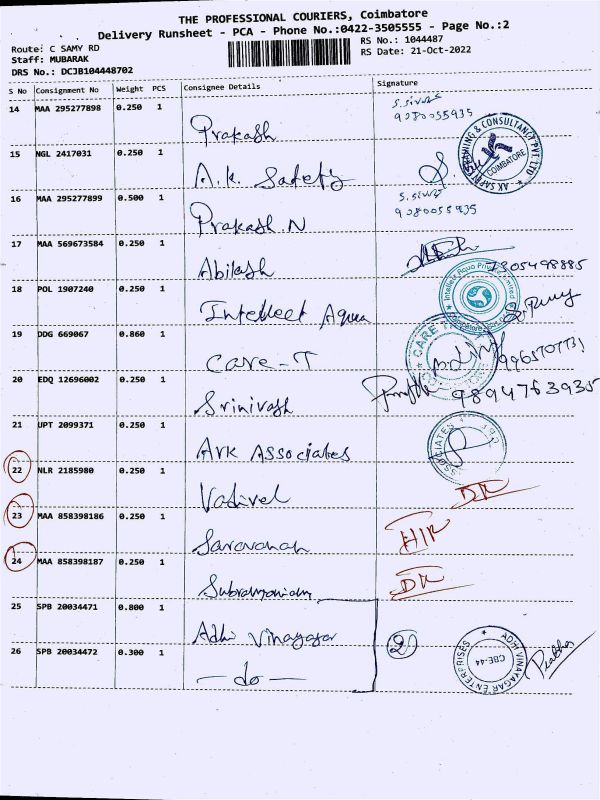 THE PROFESSIONAL COURIERS, Coimbatore
Delivery Runsheet - PCA - Phone No.:0422-3505555 - Page No.:2
Route: C SAMY RD
RS No.: 1044487
Staff: MUBARAK
RS Date: 21-Oct-2022
DRS No.: DCJB104448702
S No Consignment No Weight PCS Consignee Details Signature
14 MAA 295277898 0.250 1 Prakash
9080055935
15 NGL 2417031 0.250 1 A.K. Safety
COIMBATORE
16 MAA 295277899 0.500 1 Prakash.N
9080055935
17 MAA 569673584 0.250 1 Abilash
7305498885
18 POL 1907240 0.250 1 Intelleet Aqua
19 DDG 669067 0.860 1 Care-T
CARE
20 EDQ 12696002 0.250 1 Srinivash 9894763935
21 UPT 2099371 0.250 1 Ark Associates
22 NLR 2185980 0.250 1 Vadivel
23 MAA 858398186 0.250 1 Saravanan
24 MAA 858398187 0.250 1 Subramaniam
25 SPB 20034471 0.800 1 Adhi Vinayagar 2
ADHI VINAYAGAR ENTERPRISES
CBE-44
26 SPB 20034472 0.300 1 - do -